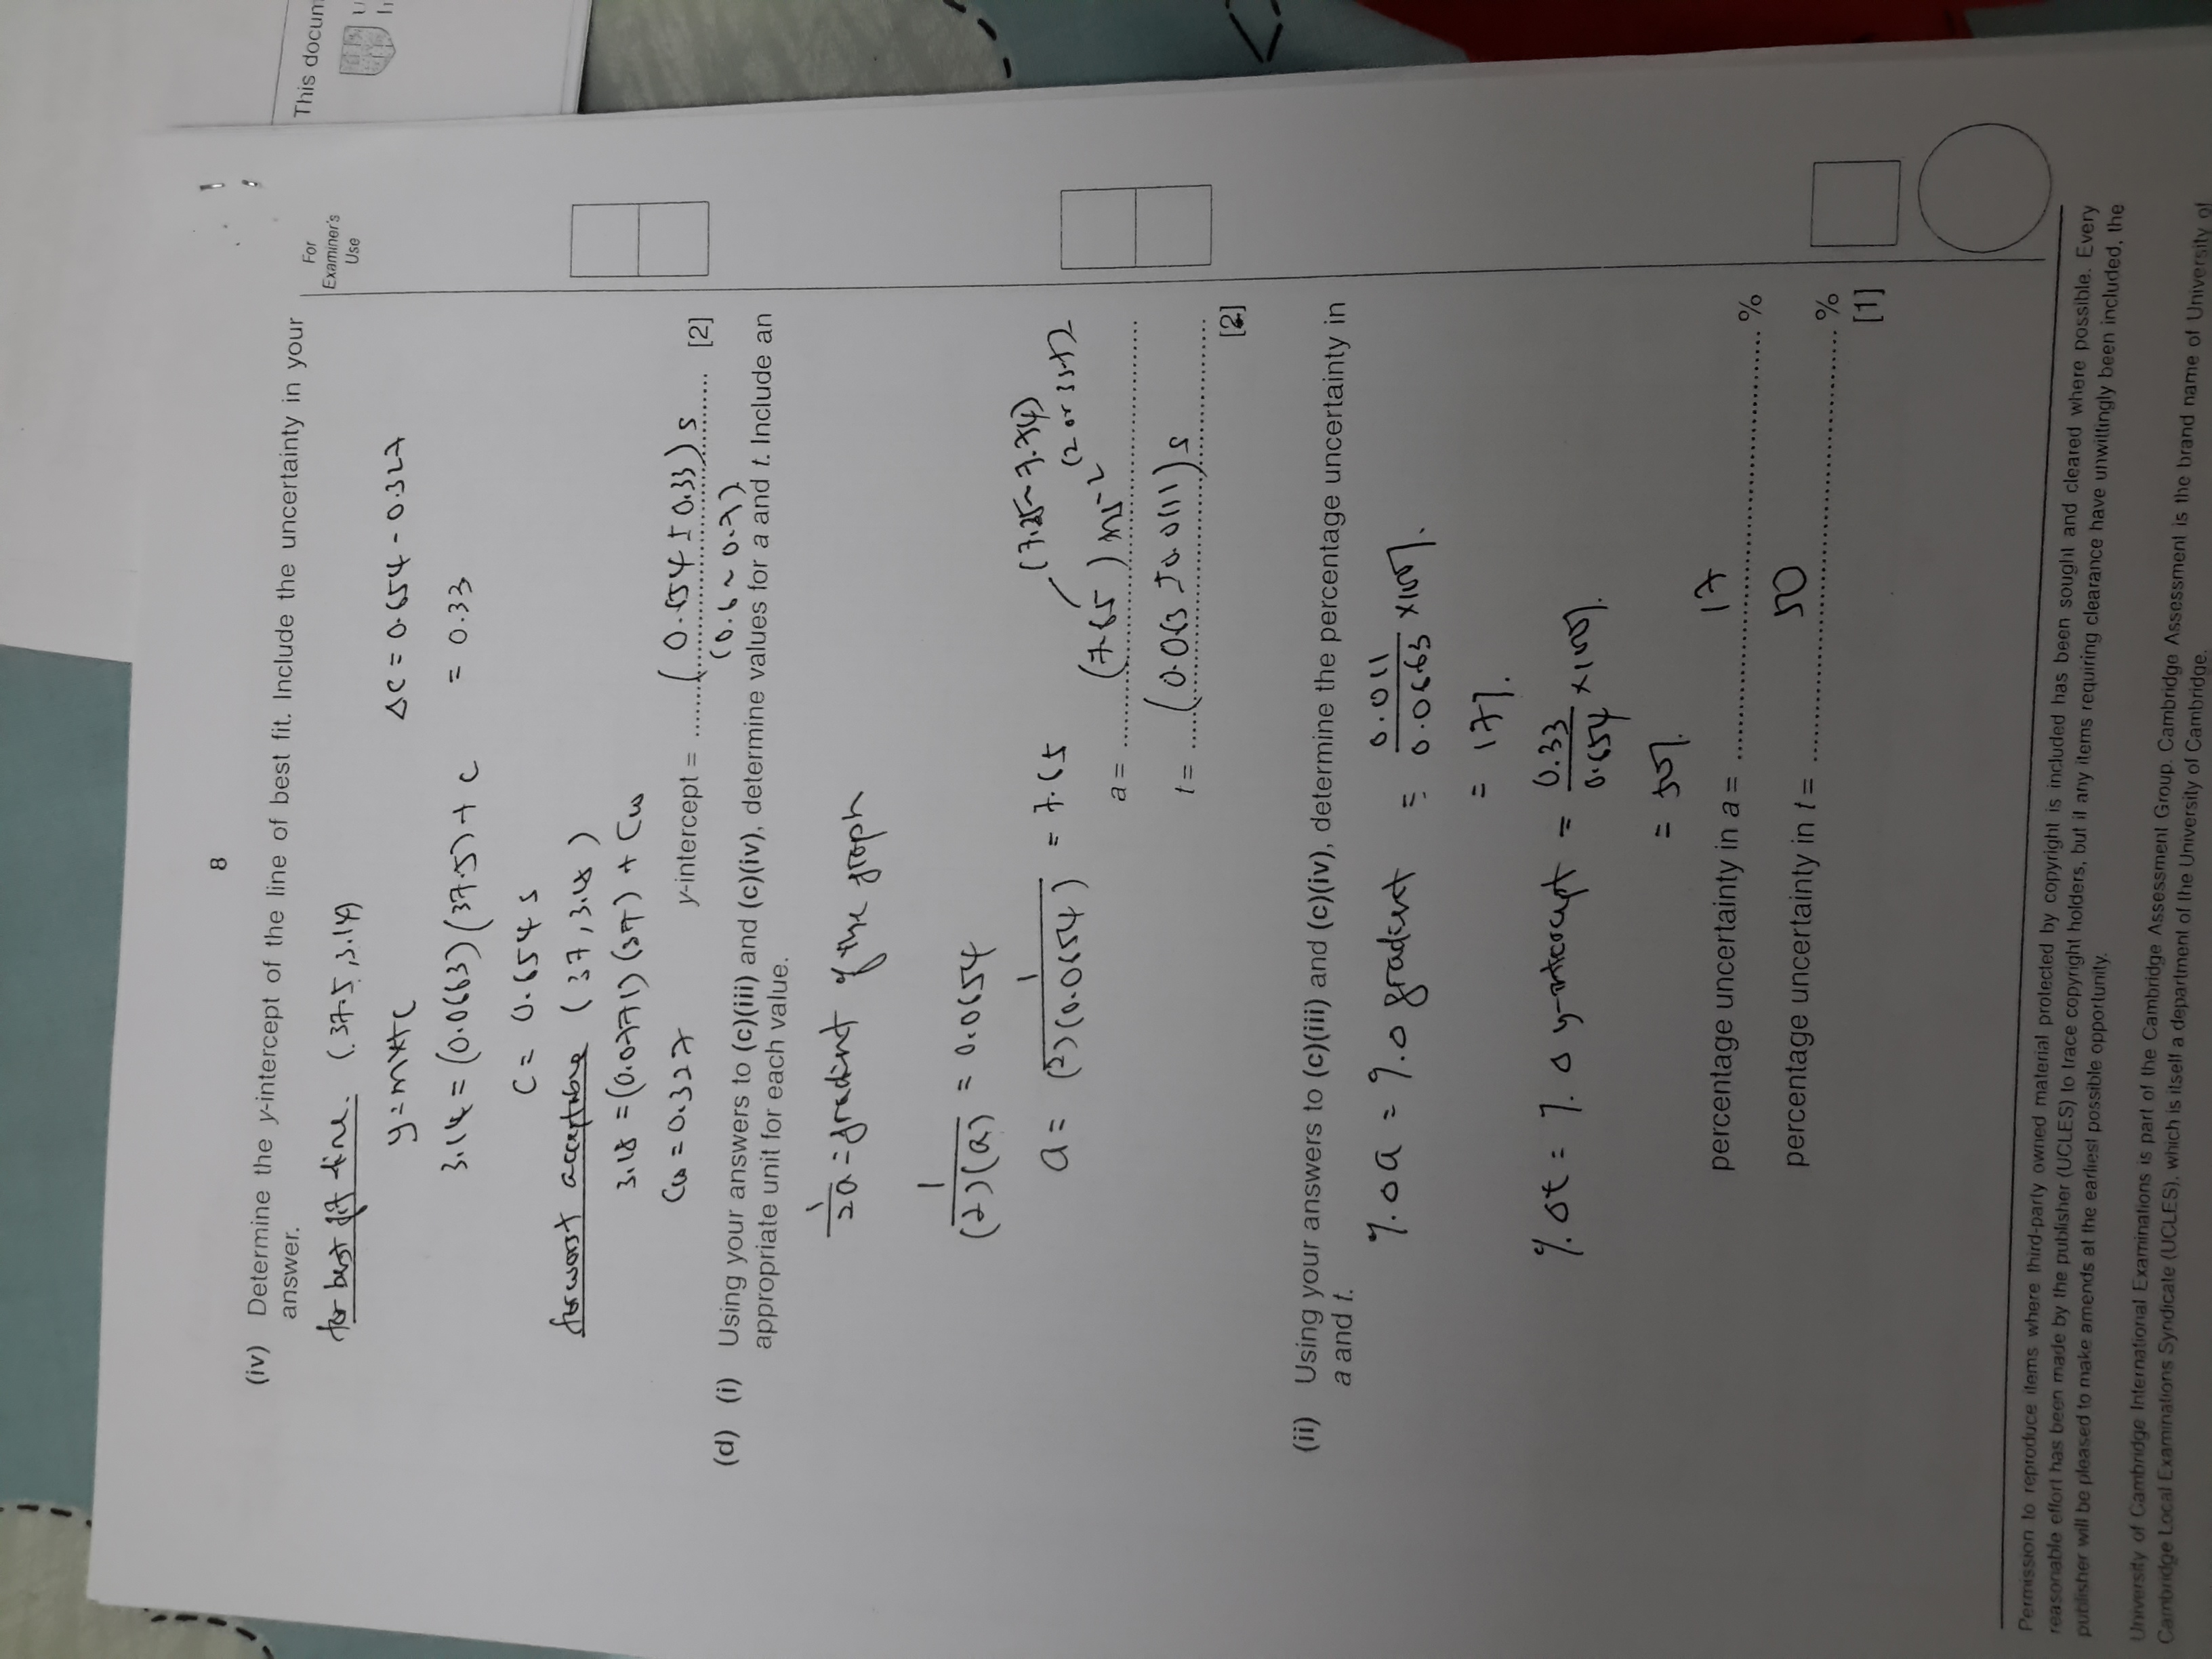 8
(iv) Determine the y-intercept of the line of best fit. Include the uncertainty in your
answer.
For
Examiner's
Use
This docum
for best fit line. (37.5, 3.14)
y=mx+c
ΔC = 0.654 - 0.327
3.14 = (0.0663)(37.5) + c
= 0.33
C = 0.654 s
for worst acceptable (37, 3.18)
3.18 = (0.0771)(37) + Cw
Cw = 0.327
y-intercept = (0.654 ± 0.33) s [2]
(0.6 ~ 0.7)
(d) (i) Using your answers to (c)(iii) and (c)(iv), determine values for a and t. Include an
appropriate unit for each value.
1/2a = gradient of the graph
1/(2)(a) = 0.0654
a = 1/(2)(0.0654) = 7.65
(2 or 3 s.f)
a = (7.65) ms⁻²
t = (0.063 ± 0.011) s
[2]
(ii) Using your answers to (c)(iii) and (c)(iv), determine the percentage uncertainty in
a and t.
%Δa = %Δ gradient = 0.011/0.0663 ×100%.
= 17%.
%Δt = %Δ y-intercept = 0.33/0.654 ×100%.
= 50%.
percentage uncertainty in a = 17 %
percentage uncertainty in t = 50 %
[1]
Permission to reproduce items where third-party owned material protected by copyright is included has been sought and cleared where possible. Every
reasonable effort has been made by the publisher (UCLES) to trace copyright holders, but if any items requiring clearance have unwittingly been included, the
publisher will be pleased to make amends at the earliest possible opportunity.
University of Cambridge International Examinations is part of the Cambridge Assessment Group. Cambridge Assessment is the brand name of University of
Cambridge Local Examinations Syndicate (UCLES), which is itself a department of the University of Cambridge.